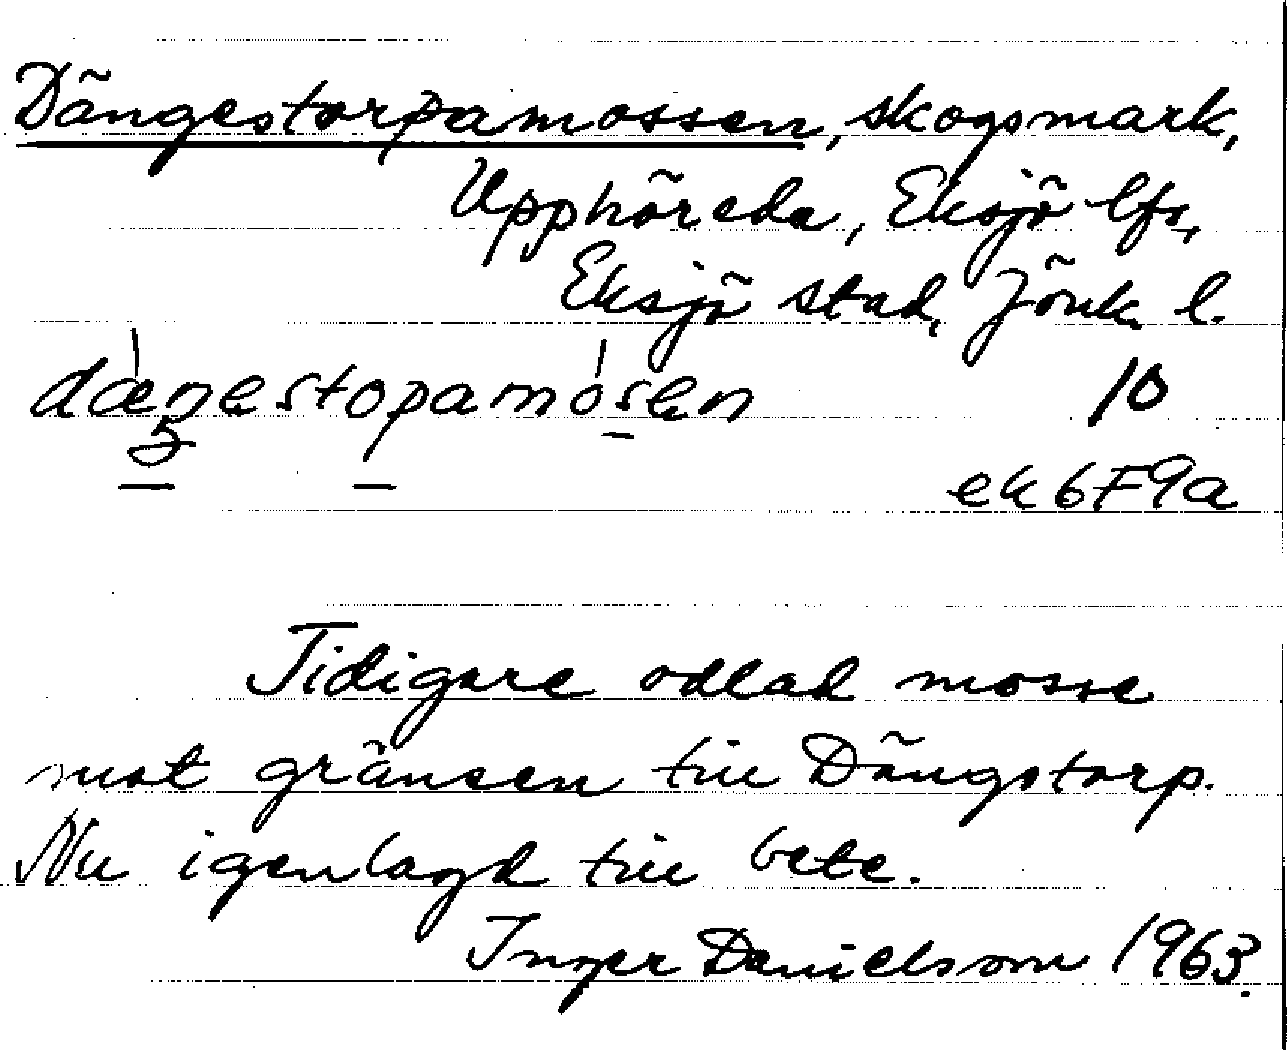 Dängestorpamossen, skogsmark,
Upphöreda, Eksjö lfs,
Eksjö stad, Jönk. l.
10
ek 6F9a
Tidigare odlad mosse
mot gränsen till Dängstorp.
Nu igenlagd till bete.
Inger Danielsson 1963.